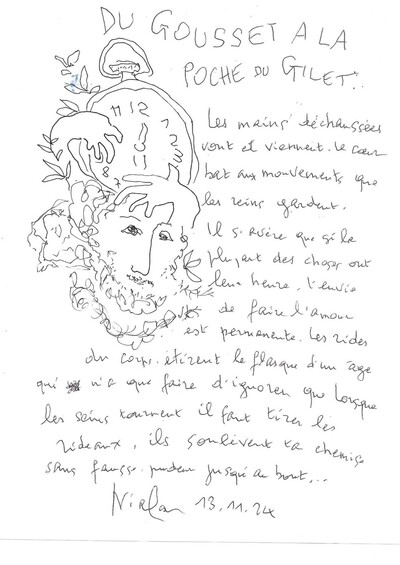 DU GOUSSET A LA
POCHE DU GILET...
11 12
1
2
3
8 7
Les mains déchaussées
vont et viennent. Le cœur
bat aux mouvements que
les reins gardent.
Il s'avère que si la
plupart des choses ont
leur heure, l'envie
de faire l'amour
est permanente. Les rides
du corps étirent le flasque d'un age
qui n'a que faire d'ignorer que lorsque
les seins tournent il faut tirer les
rideaux, ils soulèvent ta chemise
sans fausse pudeur jusqu'au bout...
13.11.24